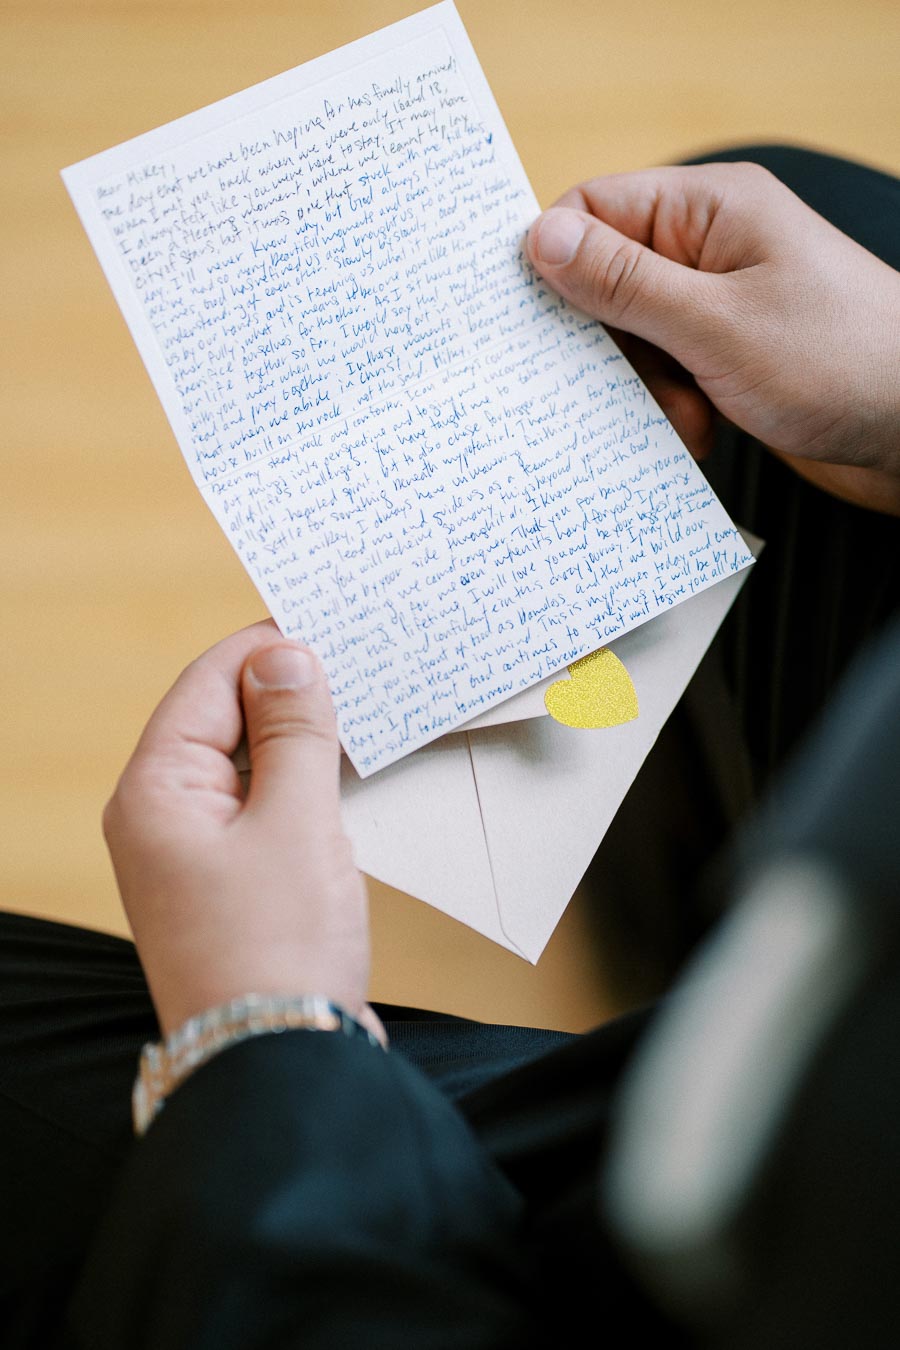 Dear Mikey,
The day that we have been hoping for has finally arrived,
When I met you back when we were only 16 and 18,
I always felt like you were here to stay. It may have
been a fleeting moment, where we learnt to play
City of Stars, but it was one that stuck with me till this
day. I'll never know why, but God always knows best ♥
We've had so many beautiful moments and even in the hard
times, God has refined us and brought us to a new
understanding of each other. Slowly by slowly, God has taken
us by our hands and is teaching us what it means to love
more fully, what it means to become more like Him and to
sacrifice ourselves for the other. As I sit here and reflect on
our life together so far, I would say that my favourite
with you were when we would hang out in Waterloo
read and pray together. In those moments, you showed
that when we abide in Christ, we can become as a
house built on the rock, not the sand. Mikey, you have always
been my steady rock and comforter. I can always count on you to
put things into perspective and to give me encouragement
all of life's challenges. You have taught me to take on life with
a light-hearted spirit, but to also chase for bigger and better,
to settle for something beneath my potential. Thank you for believing
in me Mikey, I always have unwavering faith in your ability
to love me, lead me and guide us as a team and church to
Christ. You will achieve so many things beyond your wildest dreams
and I will be by your side through it all. I know that with God,
there is nothing we cannot conquer. Thank you for being who you are
and showing up for me even when it's hard for you. I promise
in this lifetime, I will love you and be your biggest
cheerleader and confidant in this crazy journey. I pray that I can
present you in front of God as blameless and that we build our
church with Heaven in mind. This is my prayer today and every
day. I pray that God continues to work in us. I will be by
your side, today, tomorrow and forever. I can't wait to give you all